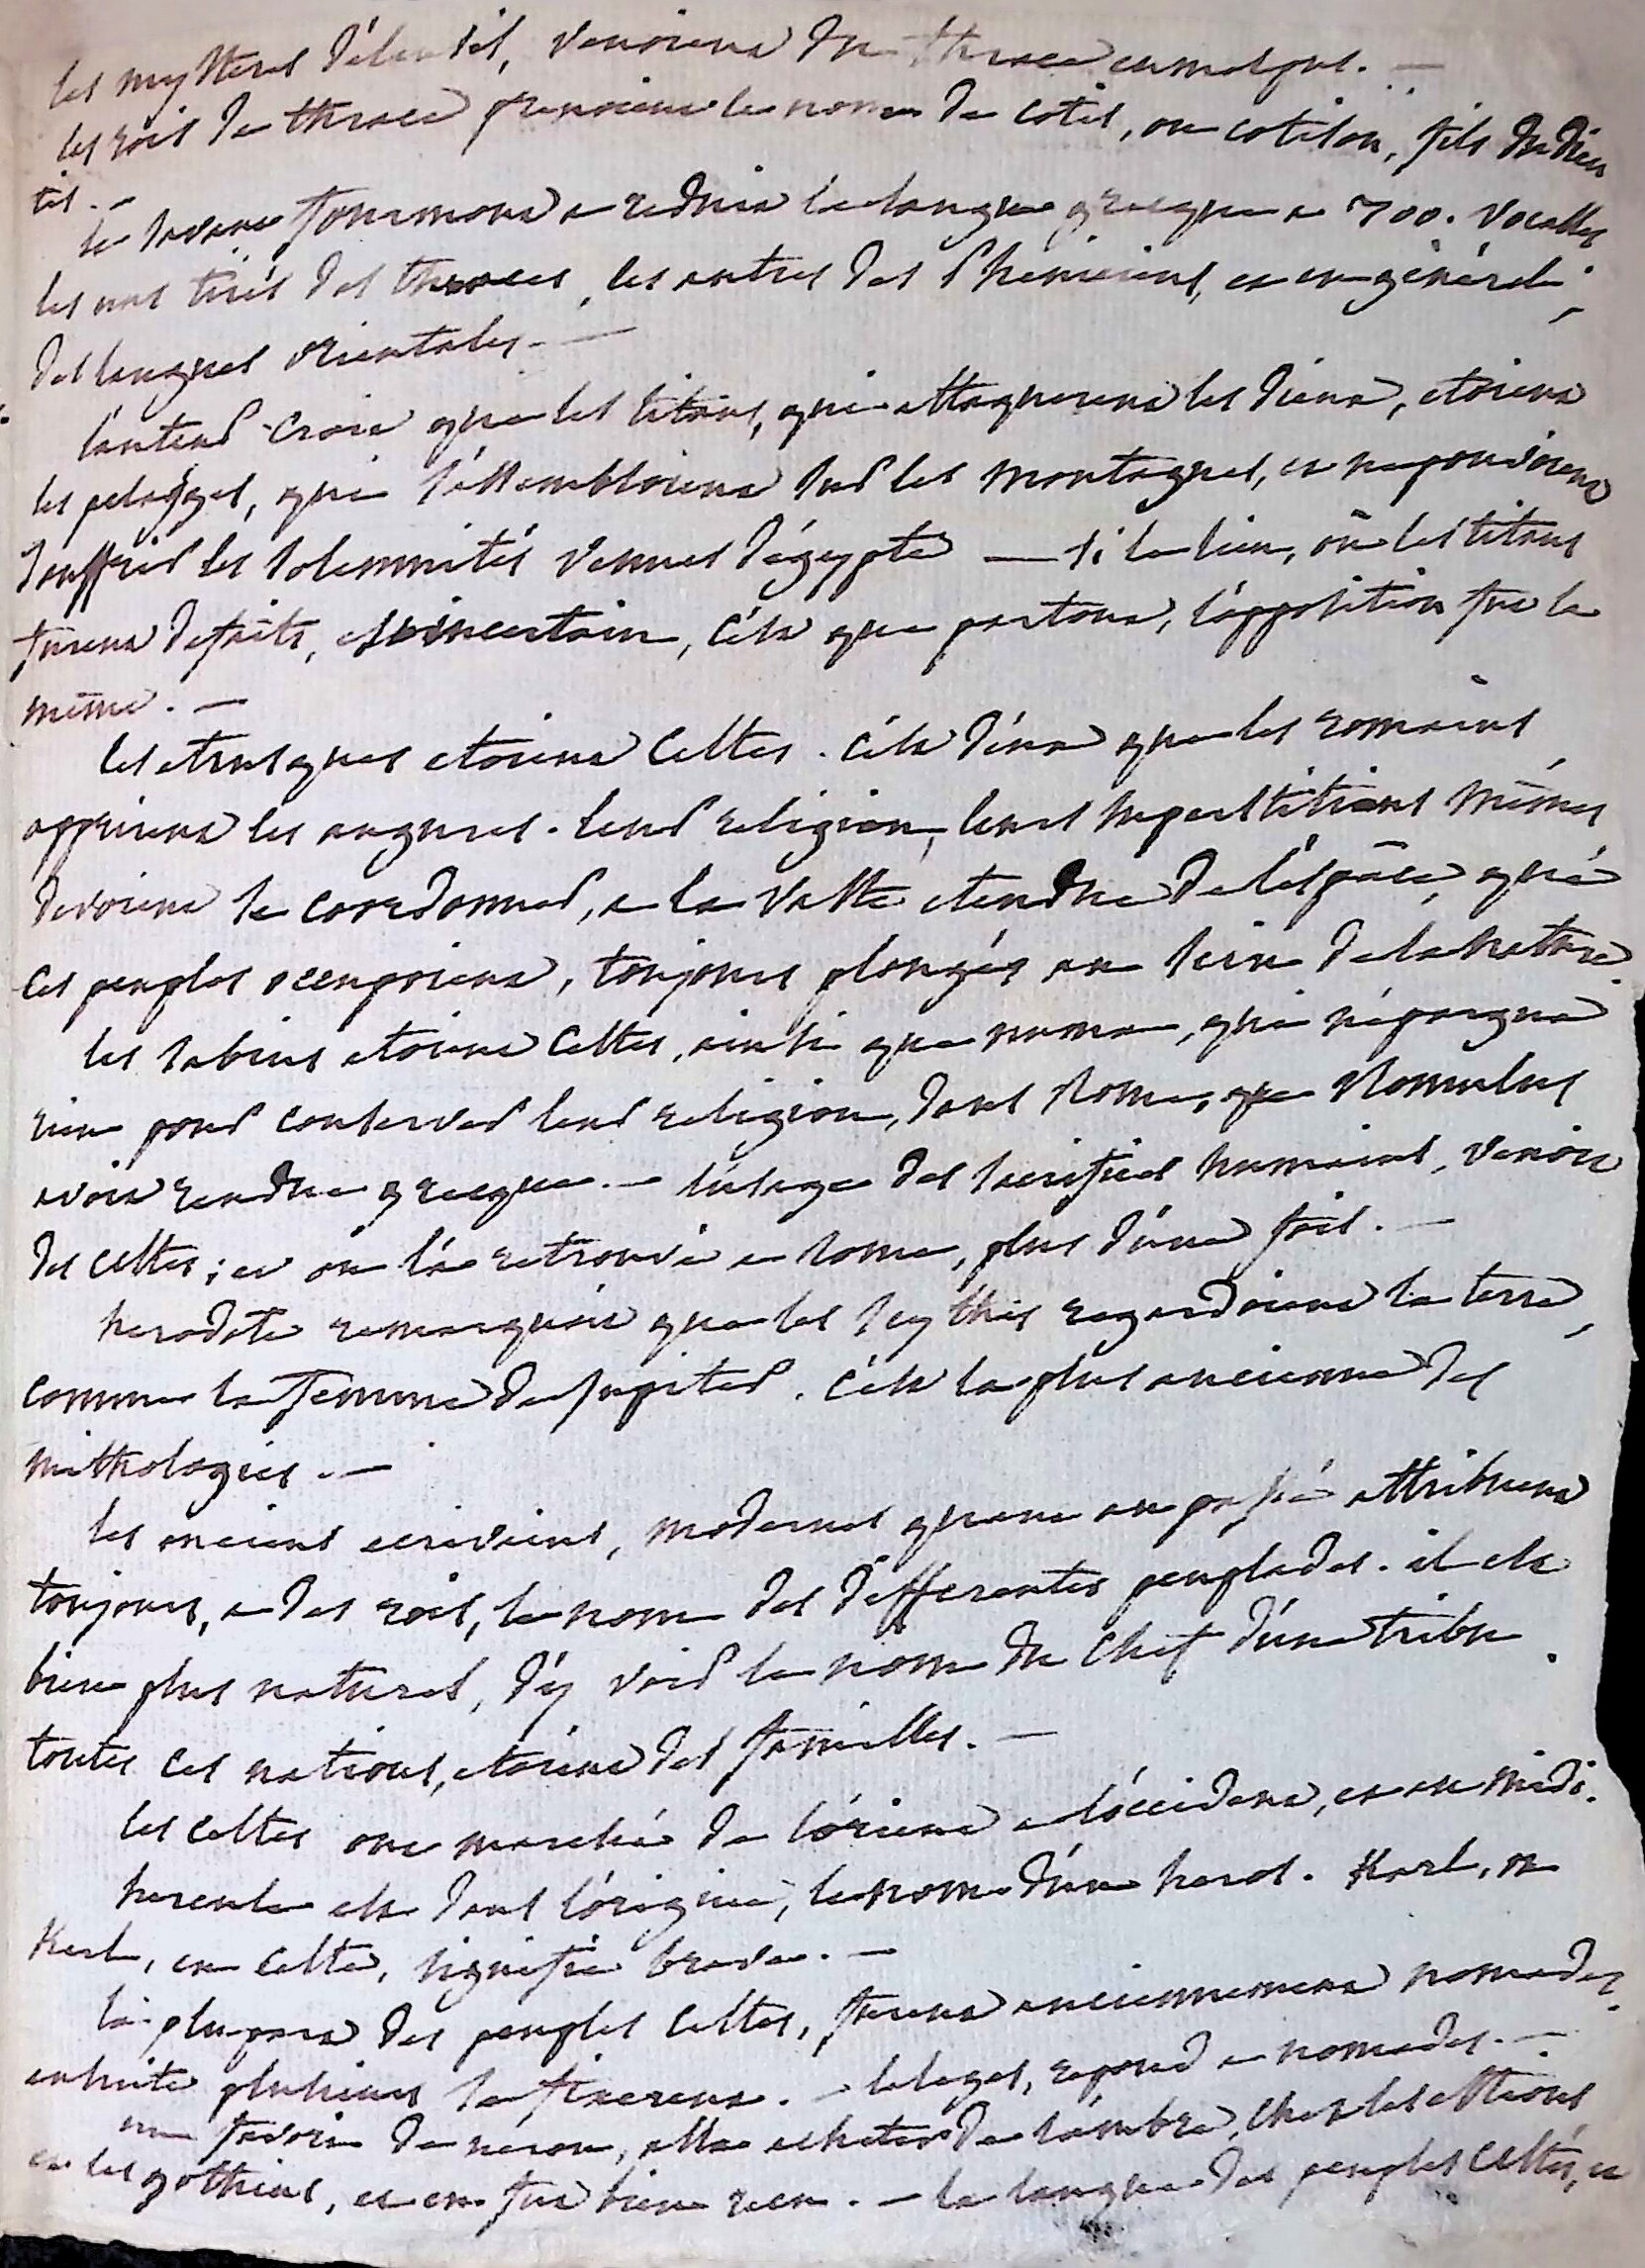 les mysteres d'eleusis, venoient du thrace eumolpus. —
les rois de thrace prenoient le nom de cotis, ou cotison, fils du dieu
tis. —
le savant fourmont a reduit la langue grecque a 700. vocables
les uns tirés des thraces, les autres des phéniciens, et en général,
des langues orientales. —
l'auteur croit que les titans, qui attaquerent les dieux, etoient
les pelasges, qui s'assembloient sur les montagnes, et ne pouvoient
souffrir les solemnités venues d'égypte — si le lieu, où les titans
furent defaits, est incertain, c'est que partout, l'opposition fut la
même. —
les etrusques etoient celtes. c'est d'eux que les romains
apprirent les augures. leur religion, leurs superstitions mêmes
devoient se coordonner, a la vaste etendue de l'espace, que
ces peuples occupoient, toujours plongés au sein de la nature.
les sabins etoient celtes, ainsi que numa, qui n'épargna
rien pour conserver leur religion, dans Rome, que Romulus
avoit rendue grecque. — l'usage des sacrifices humains, venoit
des celtes; et on l'a retrouvé a rome, plus d'une fois. —
herodote remarquoit que les scythes regardoient la terre,
comme la femme de jupiter. c'est la plus ancienne des
mithologies. —
les anciens ecrivains, modernes quant au passé attribuent
toujours, a des rois, le nom des differentes peuplades. il est
bien plus naturel, d'y voir le nom du chef d'une tribu.
toutes ces nations, etoient des familles. —
les celtes ont marché de l'orient a l'occident, et au midi.
hercule est dans l'origine, le nom d'un heros. Karl, ou
Kerl, en celte, signifie brave. —
la plupart des peuples celtes, furent anciennement nomades.
ensuite plusieurs se fixerent. — leleges, repond a nomades. —
un favori de neron, alla acheter de l'ambre, chez les estions
et les gothins, et en fut bien recu. — la langue des peuples celtes, et